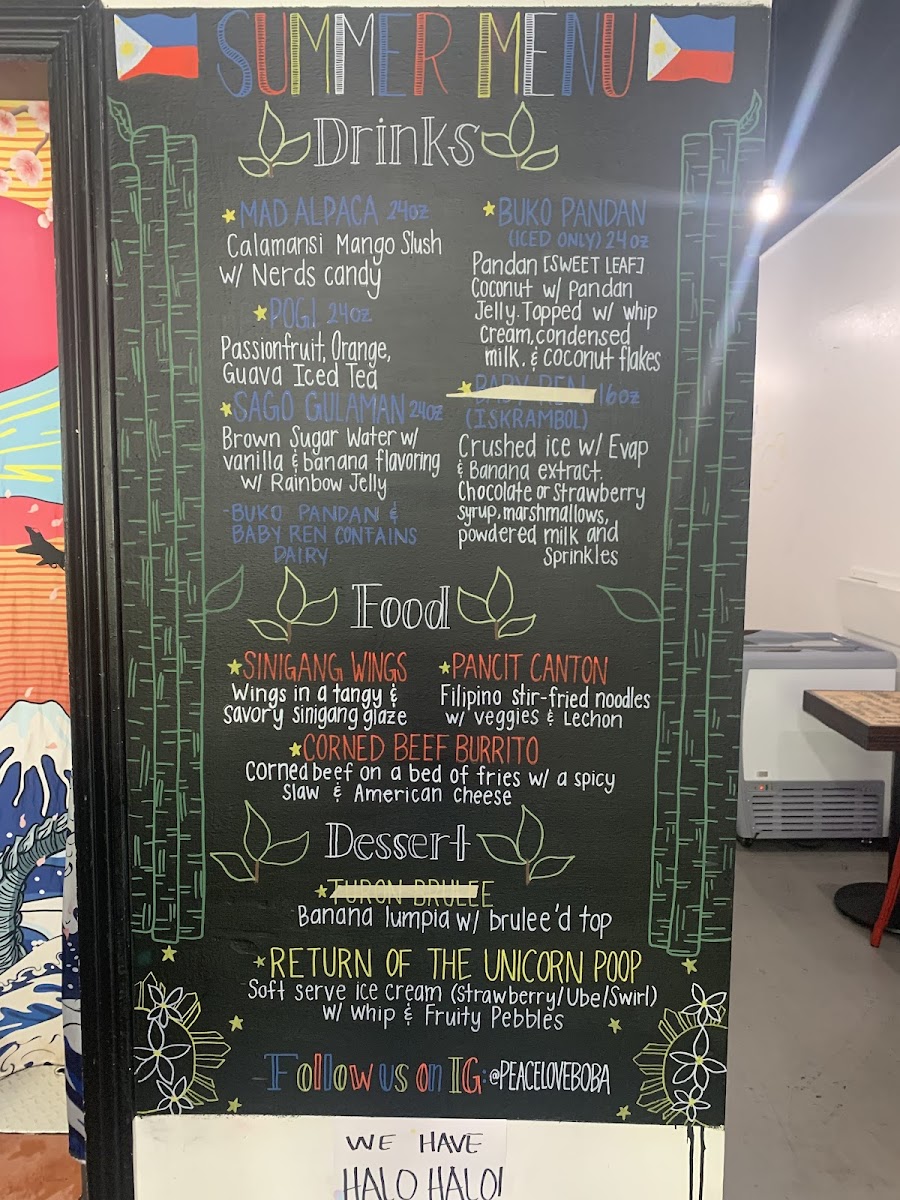 SUMMER MENU
Drinks
MAD ALPACA 24oz
Calamansi Mango Slush
w/ Nerds candy
POGI 24oz
Passionfruit, Orange,
Guava Iced Tea
SAGO GULAMAN 24oz
Brown Sugar Water w/
vanilla & banana flavoring
w/ Rainbow Jelly
-BUKO PANDAN &
BABY REN CONTAINS
DAIRY.
BUKO PANDAN
(ICED ONLY) 24oz
Pandan [SWEET LEAF]
Coconut w/ Pandan
Jelly. Topped w/ whip
cream, condensed
milk. & coconut flakes
BABY REN 16oz
(ISKRAMBOL)
Crushed ice w/ Evap
& Banana extract.
Chocolate or Strawberry
syrup, marshmallows,
powdered milk and
Sprinkles
Food
SINIGANG WINGS
Wings in a tangy &
Savory sinigang glaze
PANCIT CANTON
Filipino stir-fried noodles
w/ veggies & Lechon
CORNED BEEF BURRITO
Corned beef on a bed of fries w/ a spicy
slaw & American cheese
Dessert
TURON BRULEE
Banana lumpia w/ brulee'd top
RETURN OF THE UNICORN POOP
Soft serve ice cream (Strawberry/Ube/Swirl)
w/ whip & Fruity Pebbles
-Follow us on IG: @PEACELOVEBOBA
WE HAVE
HALO HALO!